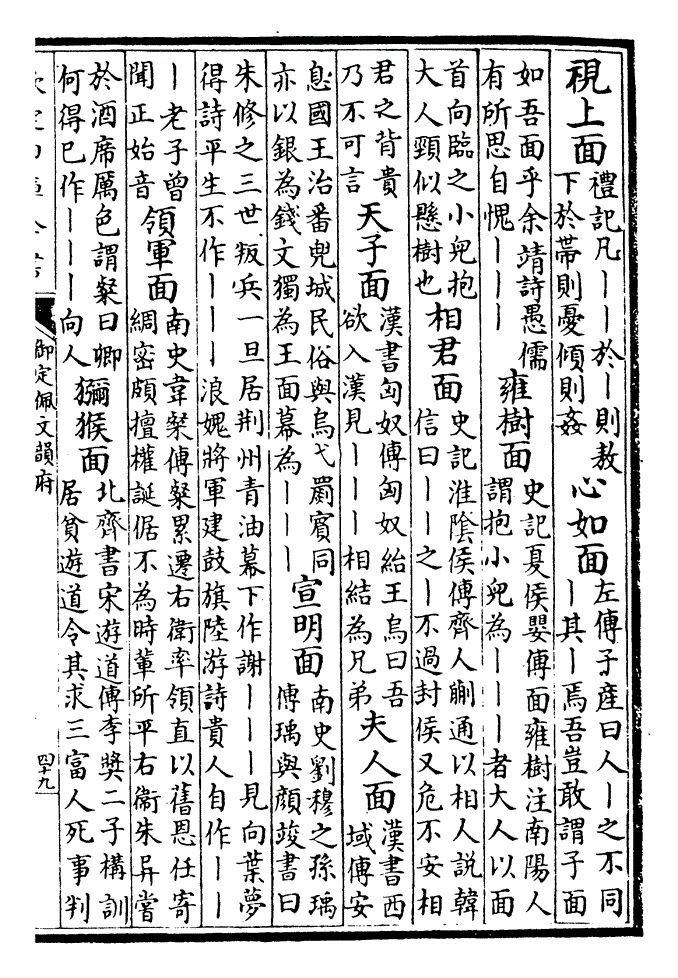 視上面
禮記凡丨丨於丨則敖
下於帶則憂傾則姦
心如面
左傳子產曰人丨之不同
丨其丨焉吾豈敢謂子面
如吾面乎余靖詩愚儒
有所思自愧丨丨丨
雍樹面
史記夏侯嬰傳面雍樹注南陽人
謂抱小兒為丨丨丨者大人以面
首向臨之小兒抱
大人頸似懸樹也
相君面
史記淮陰侯傳齊人蒯通以相人說韓
信曰丨丨之丨不過封侯又危不安相
君之背貴
乃不可言
天子面
漢書匈奴傳匈奴紿王烏曰吾
欲入漢見丨丨丨相結為兄弟
夫人面
漢書西
域傳安
息國王治番兜城民俗與烏弋罽賓同
亦以銀為錢文獨為王面幕為丨丨丨
宣明面
南史劉穆之孫瑀
傳瑀與顏竣書曰
朱修之三世叛兵一旦居荊州青油幕下作謝丨丨丨見向葉夢
得詩平生不作丨丨丨浪媿將軍建鼓旗陸游詩貴人自作丨丨
丨老子曾
聞正始音
領軍面
南史韋粲傳粲累遷右衛率領直以舊恩任寄
綢密頗擅權誕倨不為時輩所平右衛朱异嘗
於酒席厲色謂粲曰卿
何得已作丨丨丨向人
獼猴面
北齊書宋遊道傳李奬二子構訓
居貧遊道令其求三富人死事判
欽定四庫全書
御定佩文韻府
四十九